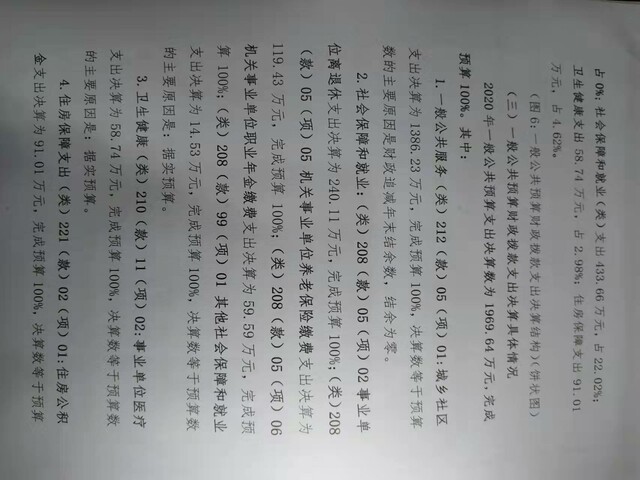 占 0%；社会保障和就业（类）支出 433.66 万元，占 22.02%；
卫生健康支出 58.74 万元，占 2.98%；住房保障支出 91.01
万元，占 4.62%。
（图 6:一般公共预算财政拨款支出决算结构）（饼状图）
（三）一般公共预算财政拨款支出决算具体情况
2020 年一般公共预算支出决算数为 1969.64 万元，完成
预算 100%。其中：
1. 一般公共服务（类）212（款）05（项）01:城乡社区
支出决算为 1386.23 万元，完成预算 100%，决算数等于预算
数的主要原因是财政追减年末结余数，结余为零。
2. 社会保障和就业:（类）208（款）05（项）02 事业单
位离退休支出决算为 240.11 万元，完成预算 100%；（类）208
（款）05（项）05 机关事业单位养老保险缴费支出决算为
119.43 万元，完成预算 100%；（类）208（款）05（项）06
机关事业单位职业年金缴费支出决算为 59.59 万元，完成预
算 100%；（类）208（款）99（项）01 其他社会保障和就业
支出决算为 14.53 万元，完成预算 100%，决算数等于预算数
的主要原因是：据实预算。
3. 卫生健康（类）210（款）11（项）02:事业单位医疗
支出决算为 58.74 万元，完成预算 100%，决算数等于预算数
的主要原因是：据实预算。
4. 住房保障支出（类）221（款）02（项）01:住房公积
金支出决算为 91.01 万元，完成预算 100%，决算数等于预算